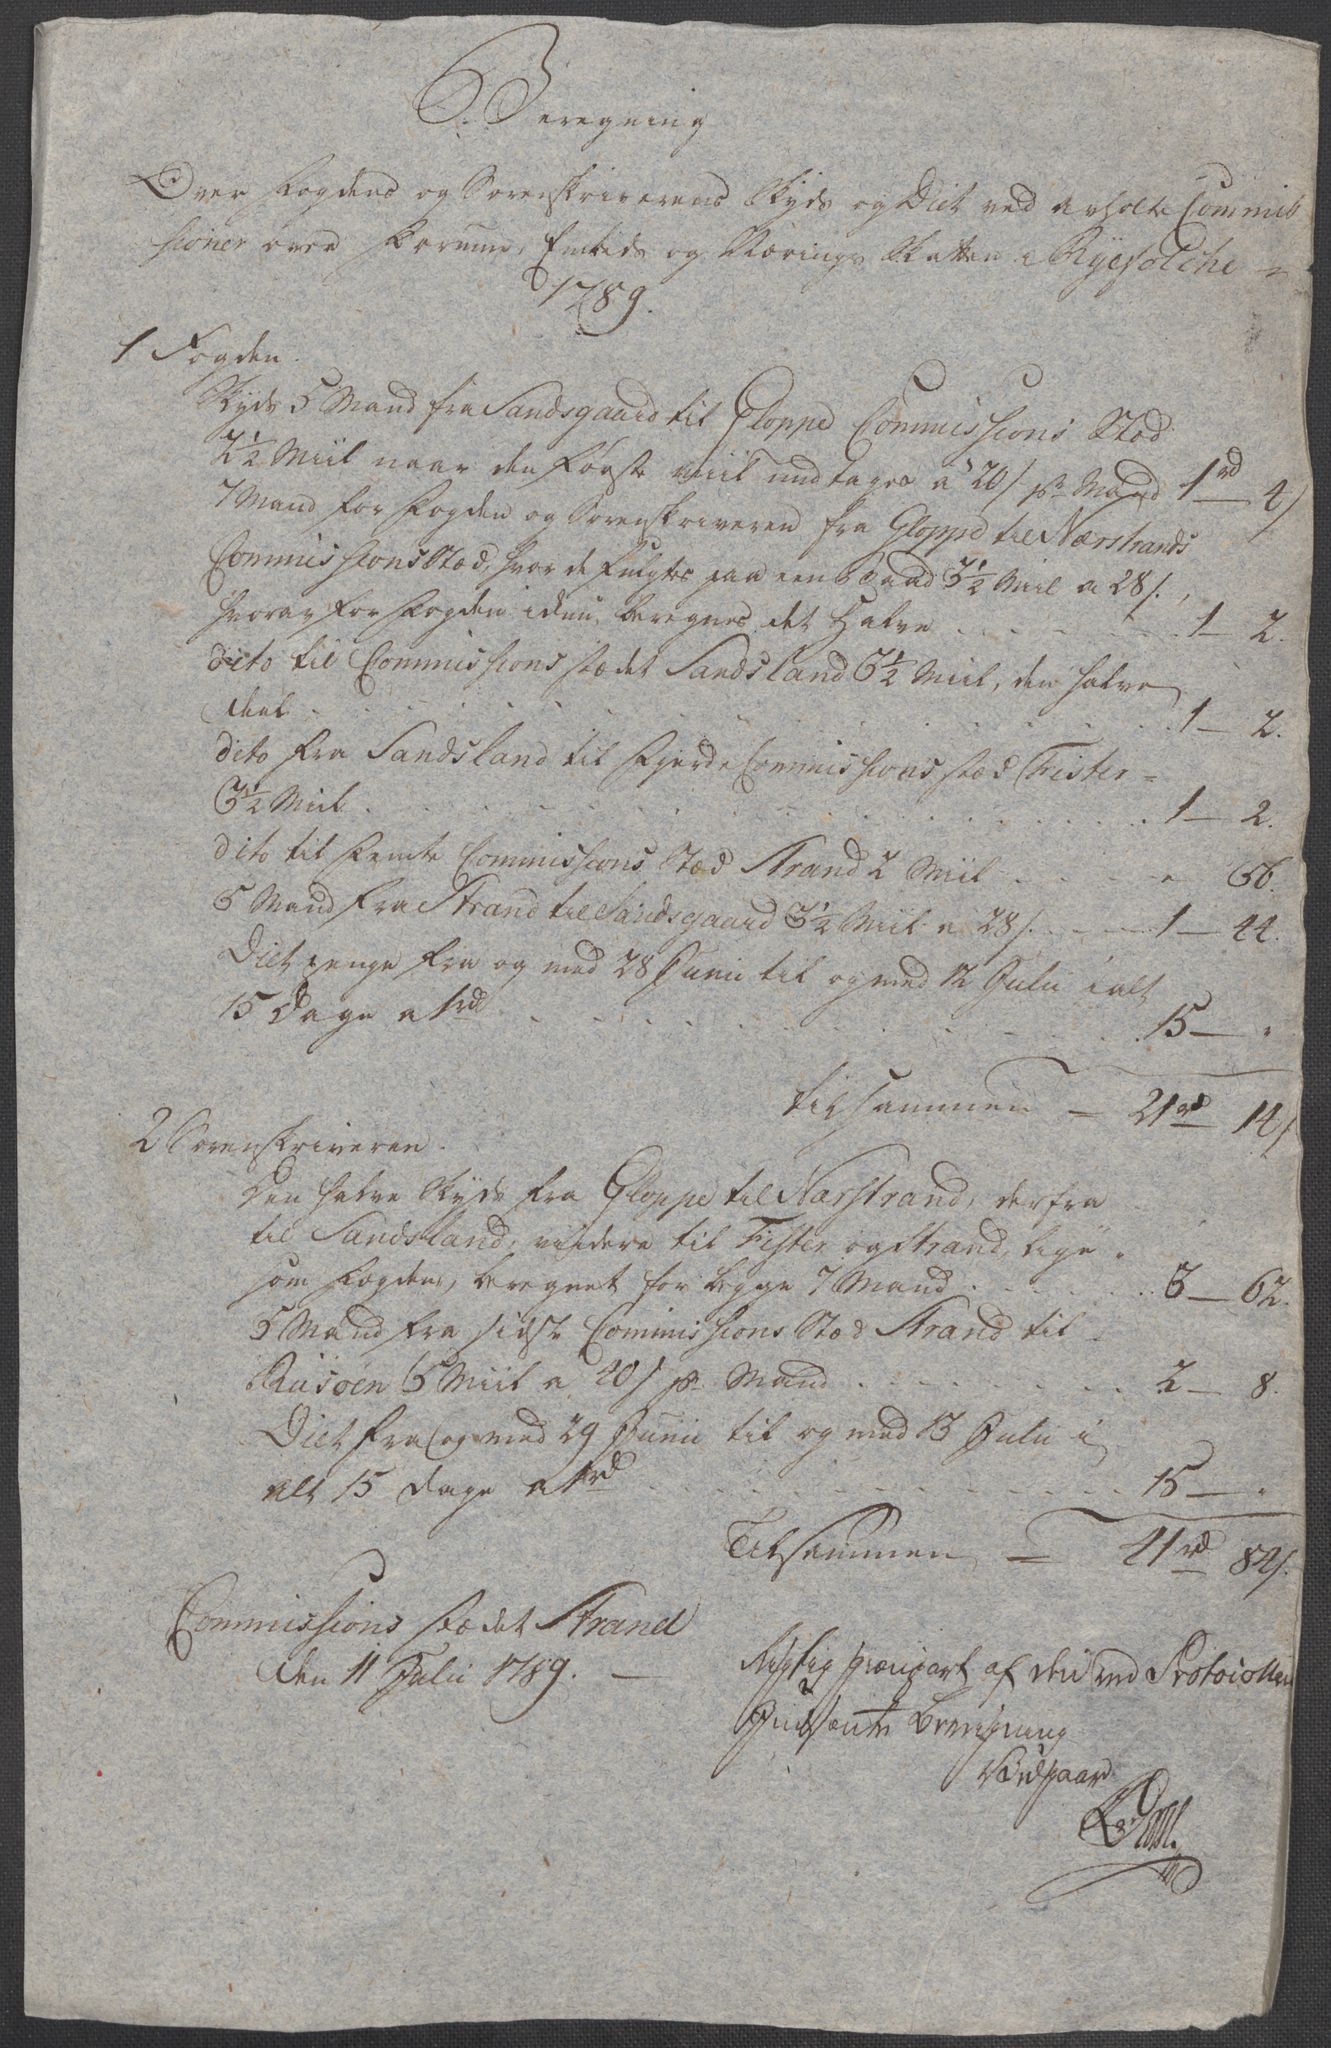 Beregning
Over Fogdens og Sorenskriverens Skyds og Diet ved afholte Commis
sioner over Formue, Embeds og Nærings Skatten i Ryefolche
1789.
1 Fogden.
Skyds 5 Mand fra Sandsgaard til Gloppe Commissions Stæd
2½ Miil naar den første Miil undtages a 20 s pr Mand 1 rd 4 s
7 Mand for Fogden og Sorenskriveren fra Gloppe til Nærstrands
Commissions Stæd, hvor de fulgtes paa een Baad 3½ Miil a 28 s.,
hvoraf for Fogden beregnes det Halve . . . 1 — 2.
dito til Commissions stædet Sandsland 3½ Miil, den halve
deel . . . 1 — 2.
dito fra Sandsland til fierde Commissions stæd Fister
3½ Miil . . . 1 — 2.
dito til femte Commissions Stæd Strand 2 Miil . . . " 56.
5 Mand fra Strand til Sandsgaard 3½ Miil a 28 s. . . 1 — 44.
Diet penge fra og med 28 Junii til og med 12 Julii ialt
15 Dage a 1 rd . . . 15 — "
tilsammen — 21 rd 14 s
2 Sorenskriveren.
Den halve Skyds fra Gloppe til Nærstrand, derfra
til Sandsland, videre til Fister og Strand, lige
som Fogden, beregnet for begge 7 Mand . . . 3 — 62.
5 Mand fra sidste Commissions Stæd Strand til
5 Miil a 40 s pr Mand . . . 2 — 8.
Diet fra og med 29 Junii til og med 13 Julii i
alt 15 Dage a 1 rd . . . 15 — "
Tilsammen — 41 rd 84 s.
Commissions stædet Strand
den 11 Julii 1789. —
Rigtig Genpart af den ved Protocollen
Beregning